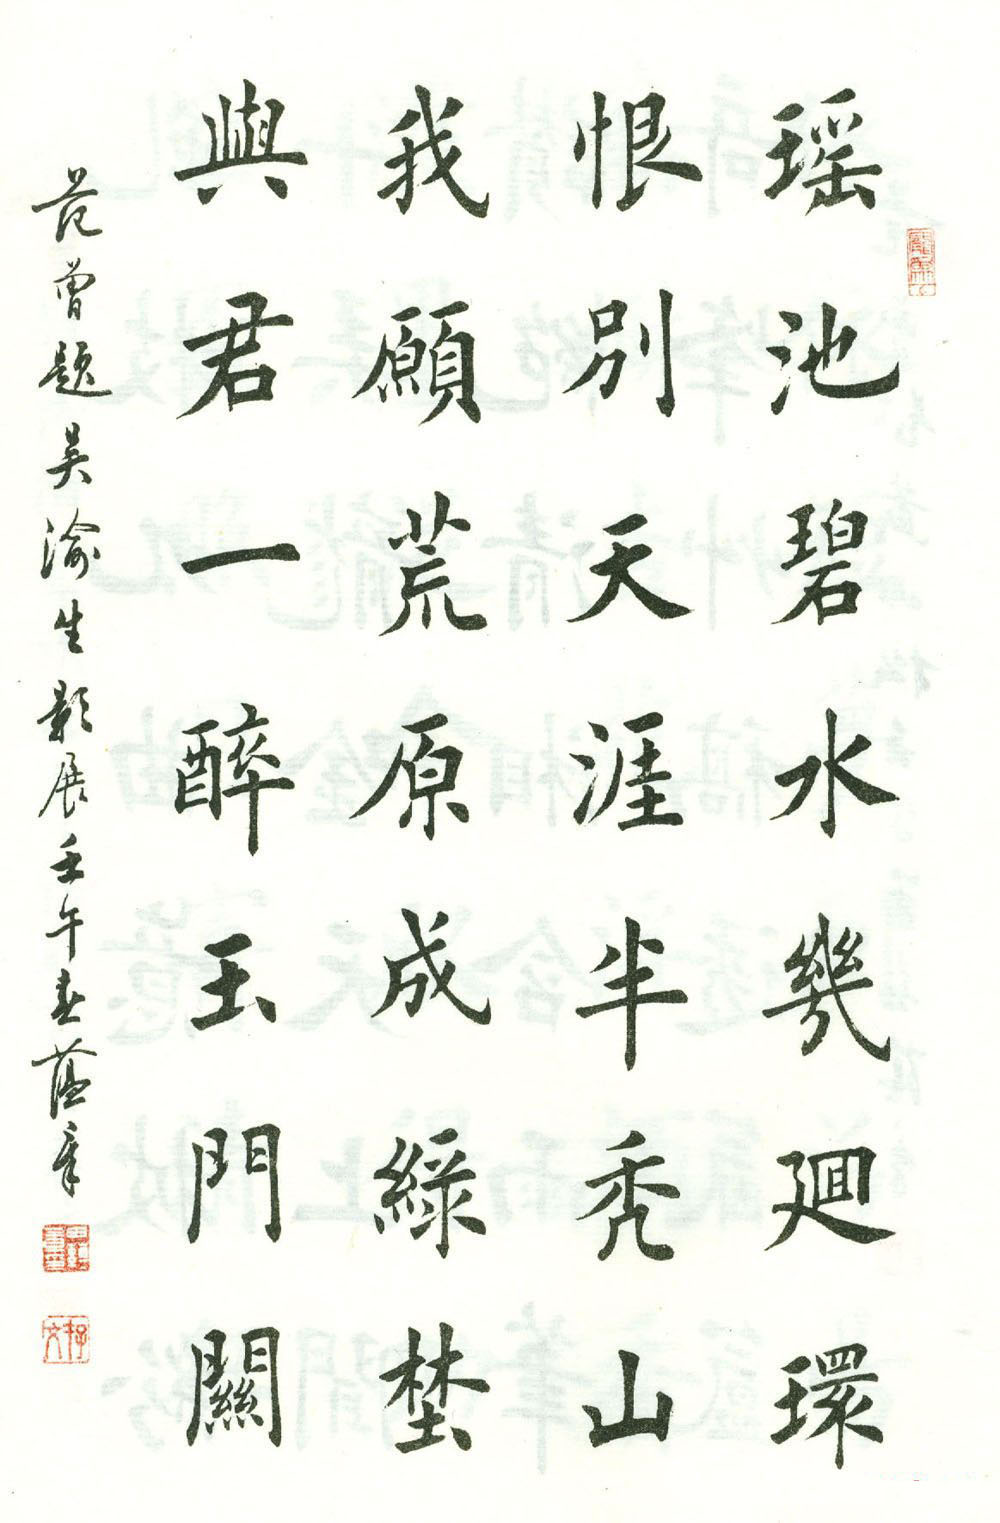 瑶池碧水幾迴環
恨別天涯半禿山
我願荒原成綠埜
與君一醉玉門關
范曾題吳渝生影展壬午春蘊章